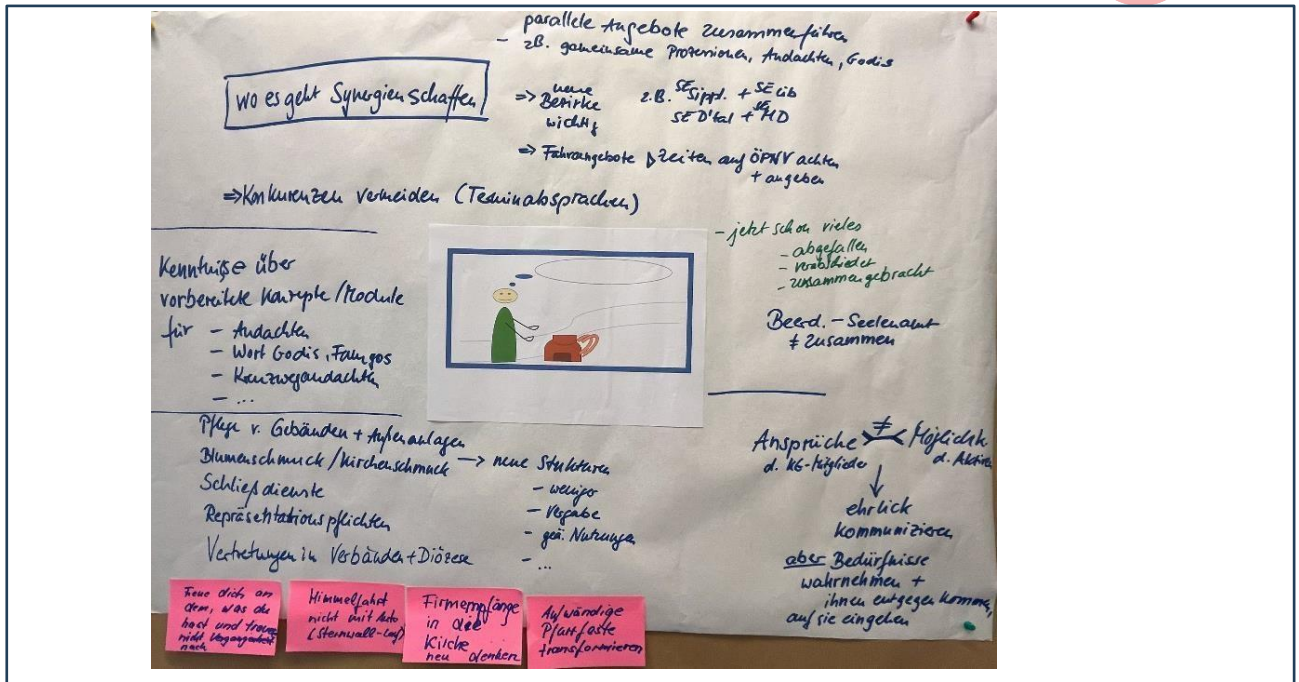 parallele Angebote zusammenführen
- z.B. gemeinsame Prozessionen, Andachten, Godis
wo es geht Synergien schaffen
=> neue
Bezirke
wichtig
z.B. SE Sippl. + SE Lib
SE D'tal + SE HD
=> Fahrangebote Zeiten auf ÖPNV achten
+ angeben
=> Konkurenzen vermeiden (Terminabsprachen)
- jetzt schon vieles
- abgefallen
- verabschiedet
- zusammengebracht
Beerd. - Seelenamt
≠ zusammen
Kenntniße über
vorbereitete Konzepte/Module
für - Andachten
- Wort Godis, Famgos
- Kreuzwegandachten
- ...
Pflege v. Gebäuden + Außenanlagen
Blumenschmuck/Kirchenschmuck → neue Strukturen
Schließdienste
Repräsentationspflichten
Vertretungen in Verbänden + Diözese
- weniger
- Vergabe
- geä. Nutzungen
- ...
Ansprüche ≠ Möglichk.
d. KG-Mitglieder d. Aktiven
ehrlich
kommunizieren
aber Bedürfnisse
wahrnehmen +
ihnen entgegen kommen,
auf sie eingehen
Freue dich an
dem, was du
hast und traure
nicht Vergangenheit
nach
Himmelfahrt
nicht mit Auto
(Sternwall-
Firmempfänge
in die
Kirche
neu denken
Aufwändige
Pfarrfeste
transformieren